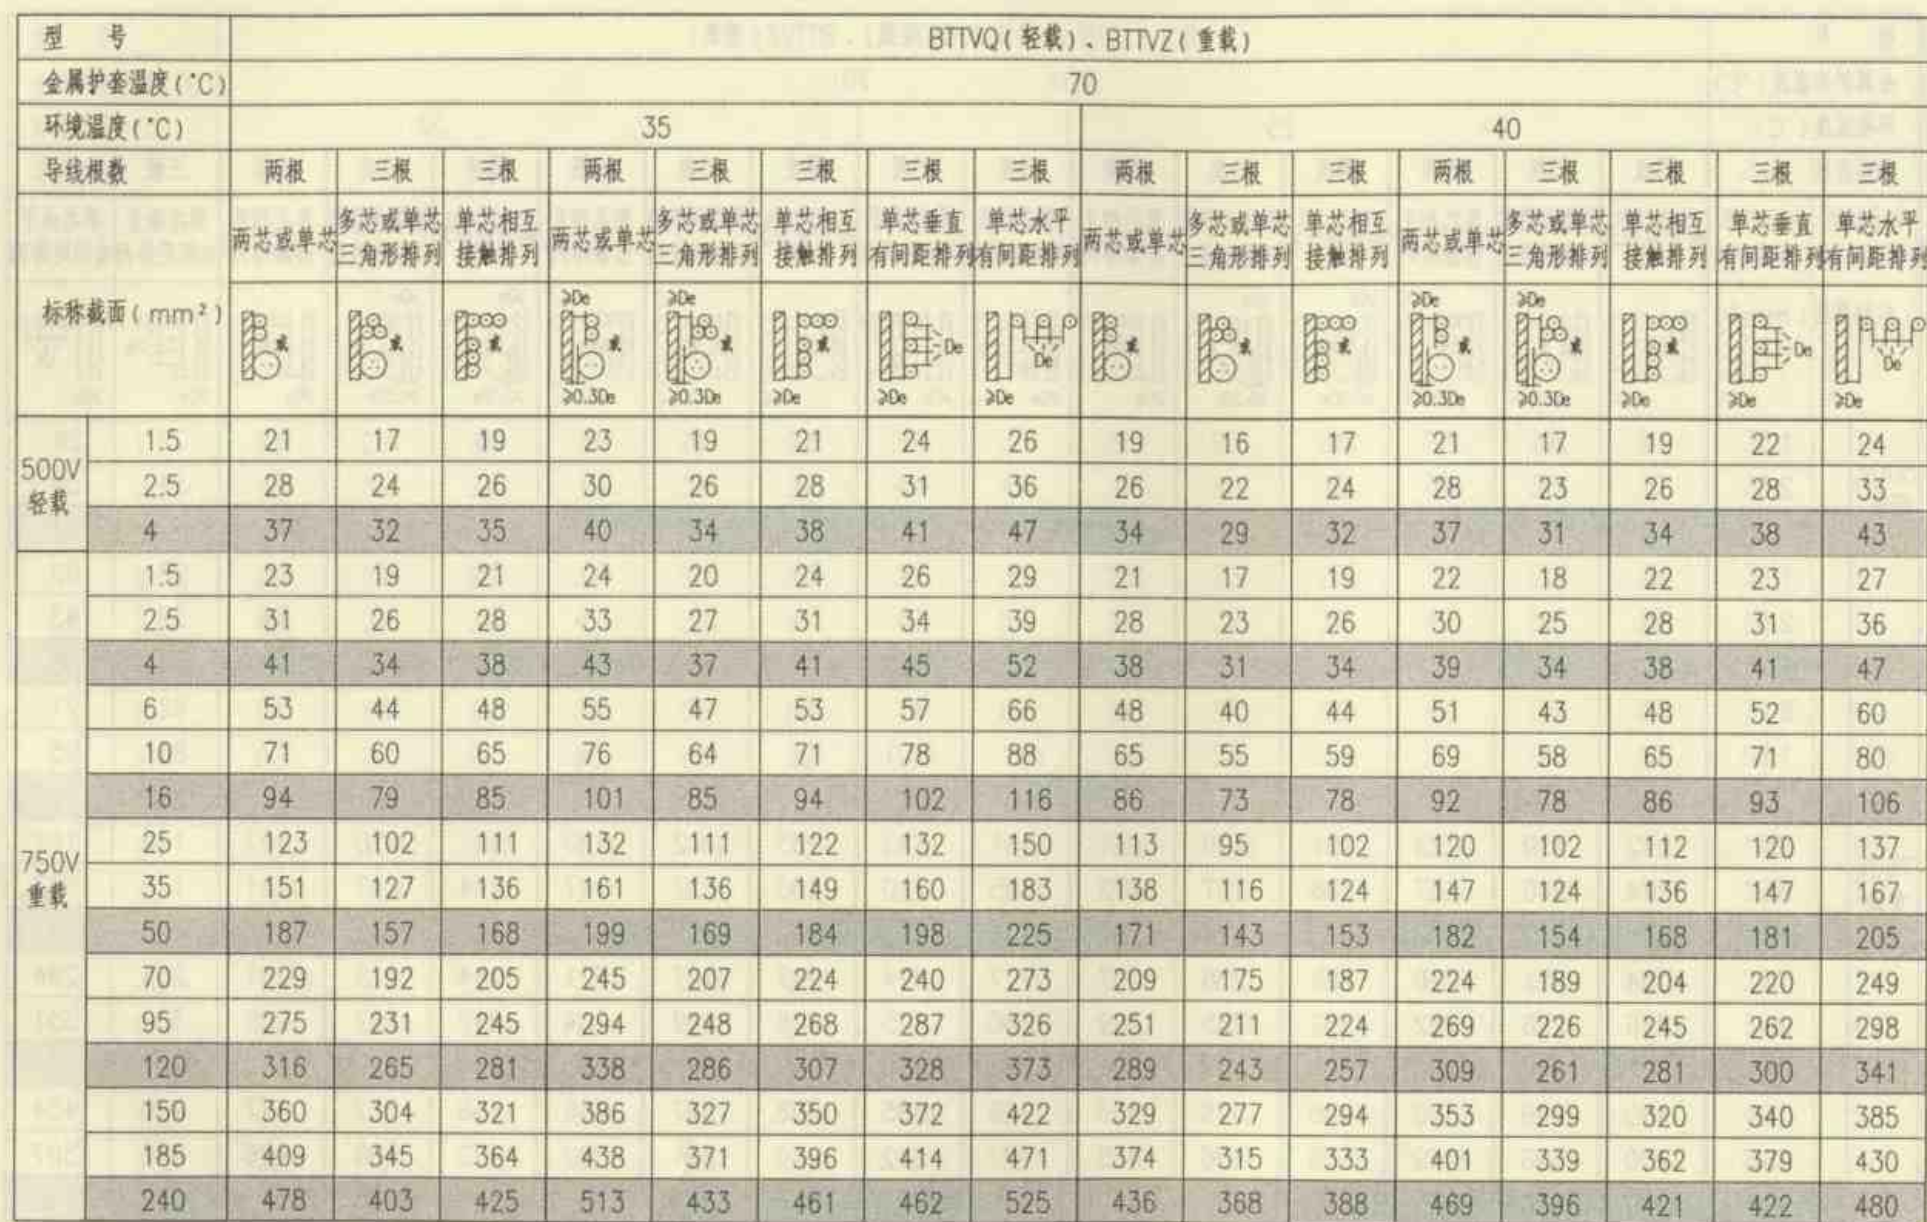 型 号 BTTVQ(轻载)、BTTVZ(重载)
金属护套温度(°C) 70
环境温度(°C) 35 40
导线根数 两根 三根 三根 两根 三根 三根 三根 三根 两根 三根 三根 两根 三根 三根 三根 三根
两芯或单芯 多芯或单芯三角形排列 单芯相互接触排列 两芯或单芯 多芯或单芯三角形排列 单芯相互接触排列 单芯垂直有间距排列 单芯水平有间距排列 两芯或单芯 多芯或单芯三角形排列 单芯相互接触排列 两芯或单芯 多芯或单芯三角形排列 单芯相互接触排列 单芯垂直有间距排列 单芯水平有间距排列
标称截面(mm²)
≥De ≥De ≥De ≥De
或 或 或 或 或 或 De De 或 或 或 或 或 或 De De
≥0.3De ≥0.3De ≥De ≥De ≥De ≥0.3De ≥0.3De ≥De ≥De ≥De
500V 轻载
1.5 21 17 19 23 19 21 24 26 19 16 17 21 17 19 22 24
2.5 28 24 26 30 26 28 31 36 26 22 24 28 23 26 28 33
4 37 32 35 40 34 38 41 47 34 29 32 37 31 34 38 43
750V 重载
1.5 23 19 21 24 20 24 26 29 21 17 19 22 18 22 23 27
2.5 31 26 28 33 27 31 34 39 28 23 26 30 25 28 31 36
4 41 34 38 43 37 41 45 52 38 31 34 39 34 38 41 47
6 53 44 48 55 47 53 57 66 48 40 44 51 43 48 52 60
10 71 60 65 76 64 71 78 88 65 55 59 69 58 65 71 80
16 94 79 85 101 85 94 102 116 86 73 78 92 78 86 93 106
25 123 102 111 132 111 122 132 150 113 95 102 120 102 112 120 137
35 151 127 136 161 136 149 160 183 138 116 124 147 124 136 147 167
50 187 157 168 199 169 184 198 225 171 143 153 182 154 168 181 205
70 229 192 205 245 207 224 240 273 209 175 187 224 189 204 220 249
95 275 231 245 294 248 268 287 326 251 211 224 269 226 245 262 298
120 316 265 281 338 286 307 328 373 289 243 257 309 261 281 300 341
150 360 304 321 386 327 350 372 422 329 277 294 353 299 320 340 385
185 409 345 364 438 371 396 414 471 374 315 333 401 339 362 379 430
240 478 403 425 513 433 461 462 525 436 368 388 469 396 421 422 480